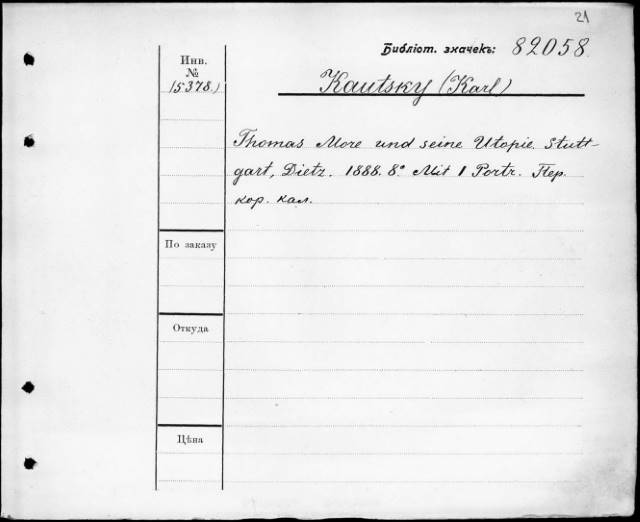 21
Библіот. значекъ: 82058.
Инв.
№
15378.)
Kautsky (Karl)
Thomas More und seine Utopie. Stutt-
gart, Dietz. 1888. 8.° Mit 1 Portr. Пер.
кор. кал.
По заказу
Откуда
Цѣна